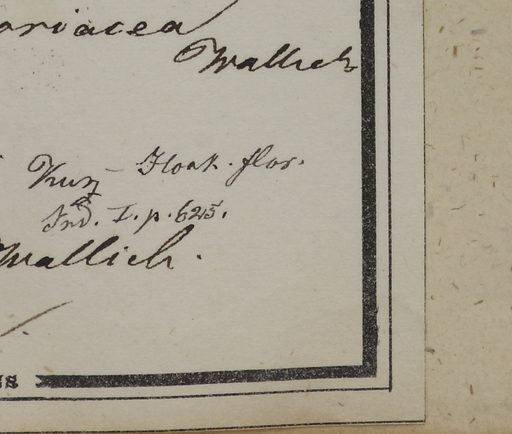 oriacea
Wallich
Kurz - Hook. flor.
Ind. I. p. 625.
Wallich.